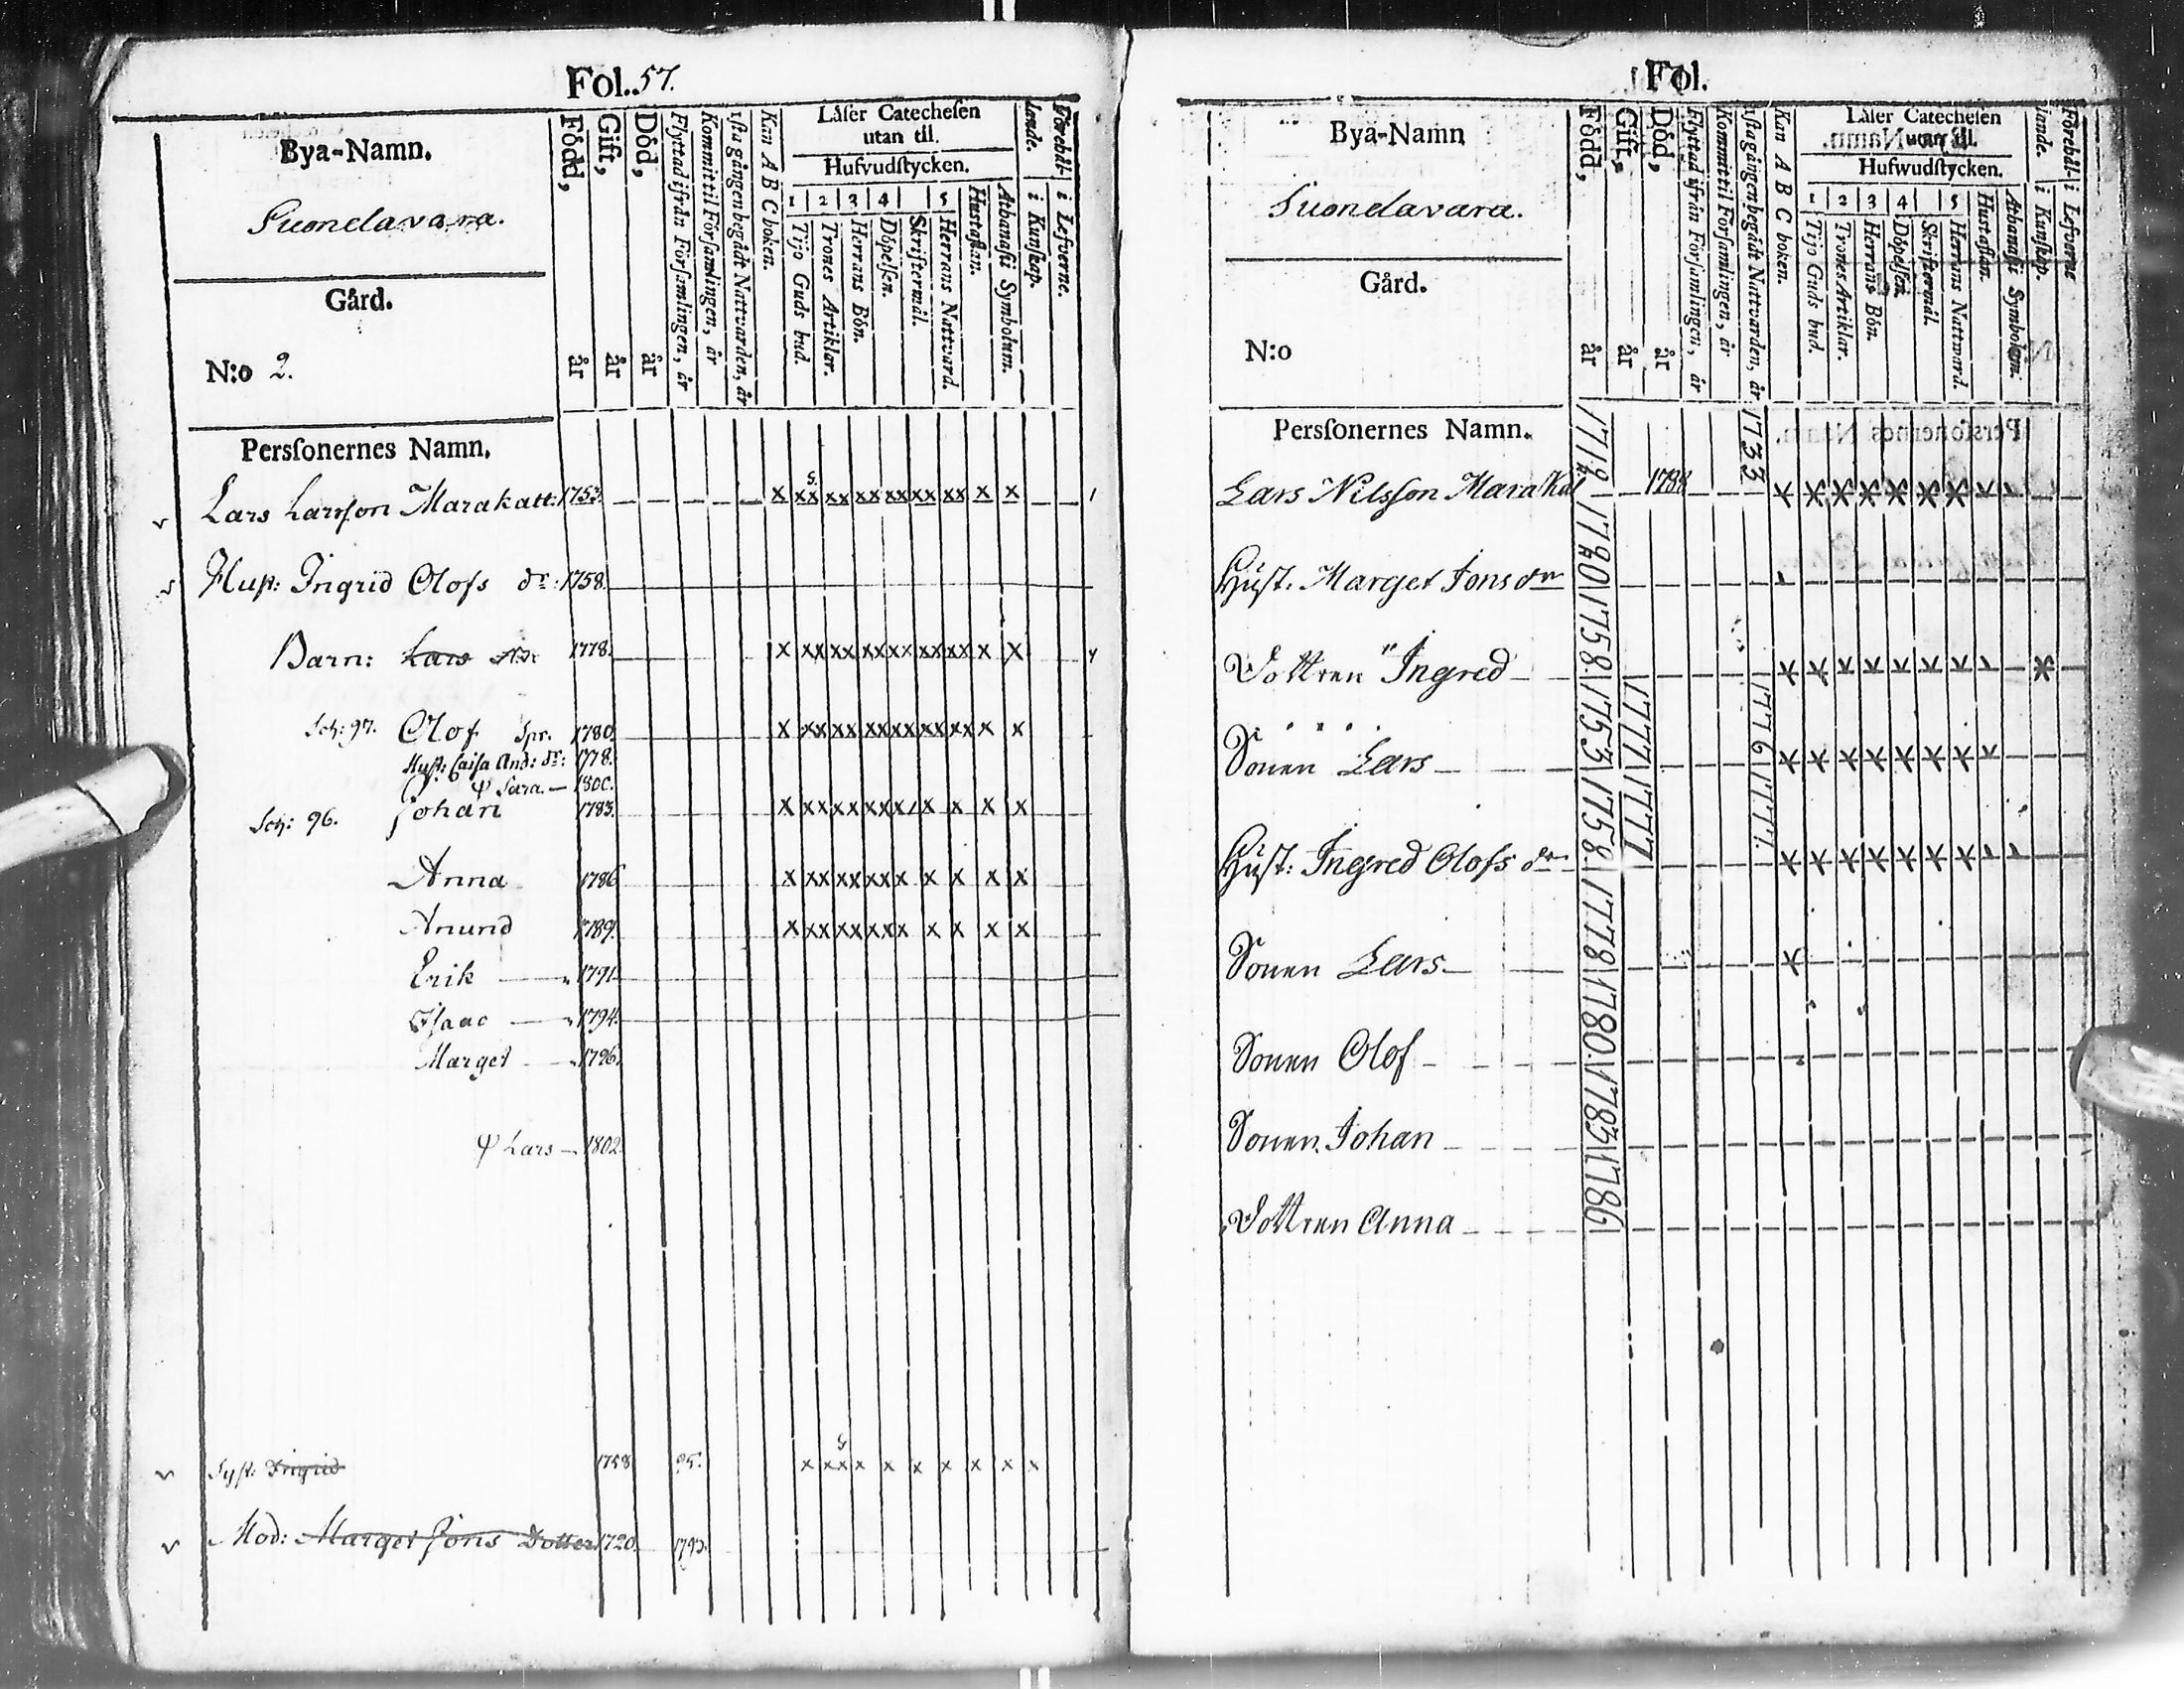 Fol. 57.
Bya-Namn.
Suondavara.
Gård.
N:o 2.
Född, år
Gift, år
Död, år
Flyttad ifrån Församlingen, år
Kommit til Församlingen, år
sta gången begådt Nattvarden, år
Kan A B C boken.
Låser Catecheſen
utan til.
Hufvudſtycken.
1 2 3 4 5
Tijo Guds bud.
Trones Artiklar.
Herrans Bön.
Döpelſen.
Skriftermål.
Herrans Nattvard.
Hustaflan.
Athanaſii Symbolum.
Förehål-
lande.
i Kunſkap.
i Lefverne.
Perſonernes Namn.
Lars Larſſon Marakatt. 1753. x xx xx xx xx xx xx x x
Huſt: Ingrid Olofs dr: 1758.
Barn: Lars 1778. x xx xx xx xx xx xx x x
Sch: 97. Olof Spr. 1780. x xx xx xx xx xx xx x x
Huſt: Caiſa And: dr: 1778.
Sara. 1800.
Sch: 96. Johan 1783. x xx xx xx x x x x x
Anna 1786 x xx xx xx x x x x x
Anund 1789. x xx xx xx x x x x x
Erik 1791.
Iſaac 1794.
Marget 1796.
Lars 1802.
Syſt: Ingrid 1758 95. x xx x x x x x x x
Mod: Marget Jons Dotter 1720. 1793.
Fol.
Bya-Namn
Suondavara.
Gård.
N:o
Född, år
Gift, år
Död, år
Flyttad ifrån Församlingen, år
Kommit til Församlingen, år
sta gången begådt Nattvarden, år
Kan A B C boken.
Låſer Catecheſen
utan til.
Hufwudſtycken.
1 2 3 4 5
Tijo Guds bud.
Trones Artiklar.
Herrans Bön.
Döpelſen.
Skriftermål.
Herrans Nattvard.
Hustaflan.
Athanaſii Symbolum.
Förehål-
lande.
i Kunſkap.
i Lefverne
Perſonernes Namn.
Lars Nilsſon Marakat 1719 1788 1733
Huſt. Marget Jons dr 1720
Dottren Ingred 1758
Sonen Lars 1753 1777 1776
Huſt: Ingred Olofs dr 1758. 1777 1777.
Sonen Lars 1778
Sonen Olof 1780
Sonen Johan 1783
Dottren Anna 1786